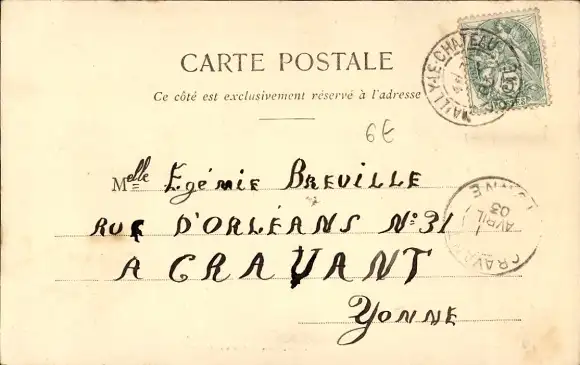 CARTE POSTALE
Ce côté est exclusivement réservé à l'adresse
MAILLY-LE-CHATEAU
6€
Melle Egémie BREVILLE
RUE D'ORLÉANS N° 31
A CRAVANT
YONNE
AVRIL
03